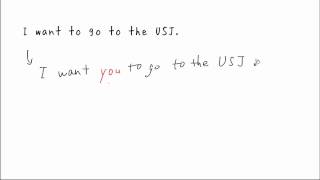 I want to go to the USJ.
I want you to go to the USJ